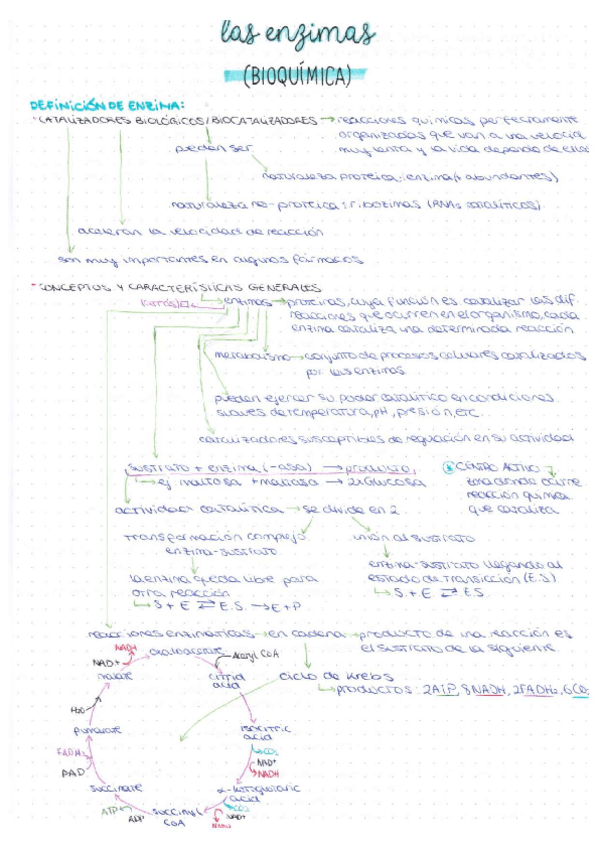 las enzimas
(BIOQUÍMICA)
DEFINICIÓN DE ENZIMA:
CATALIZADORES BIOLÓGICOS/BIOCATALIZADORES → reacciones químicas perfectamente
organizadas que van a una velocid
muy lenta y la vida depende de ellas
pueden ser
naturaleza proteica: enzima (+ abundantes)
naturaleza no-proteica: ribozimas (RNAs catalíticos)
aceleran la velocidad de reacción
son muy importantes en algunos fármacos
CONCEPTOS Y CARACTERÍSTICAS GENERALES
enzimas → proteínas, cuya función es catalizar las dif.
reacciones que ocurren en el organismo, cada
enzima cataliza una determinada reacción
metabolismo → conjunto de procesos celulares catalizados
por las enzimas
pueden ejercer su poder catalítico en condiciones
suaves de temperatura, pH, presión, etc.
catalizadores susceptibles de regulación en su actividad
sustrato + enzima (-asa) → producto
CENTRO ACTIVO →
ej maltosa + maltasa → 2xGlucosa
zona donde ocurre
reacción química
que cataliza
actividad catalítica → se divide en 2
transformación complejo
enzima-sustrato
unión al sustrato
la enzima queda libre para
otra reacción
S + E ⇄ E.S. → E + P
enzima-sustrato llegando al
estado de transición (E.S)
S + E ⇄ E.S.
reacciones enzimáticas → en cadena → producto de una reacción es
el sustrato de la siguiente
ciclo de Krebs
productos: 2ATP, 8NADH, 2FADH₂, 6CO₂
NADH
oxaloacetate
Acetyl CoA
NAD+
malate
citric
acid
H₂O
fumarate
isocitric
acid
CO₂
NAD+
NADH
FADH₂
FAD
succinate
α-ketoglutaric
acid
CO₂
NAD+
NADH
ATP
ADP
succinyl
CoA